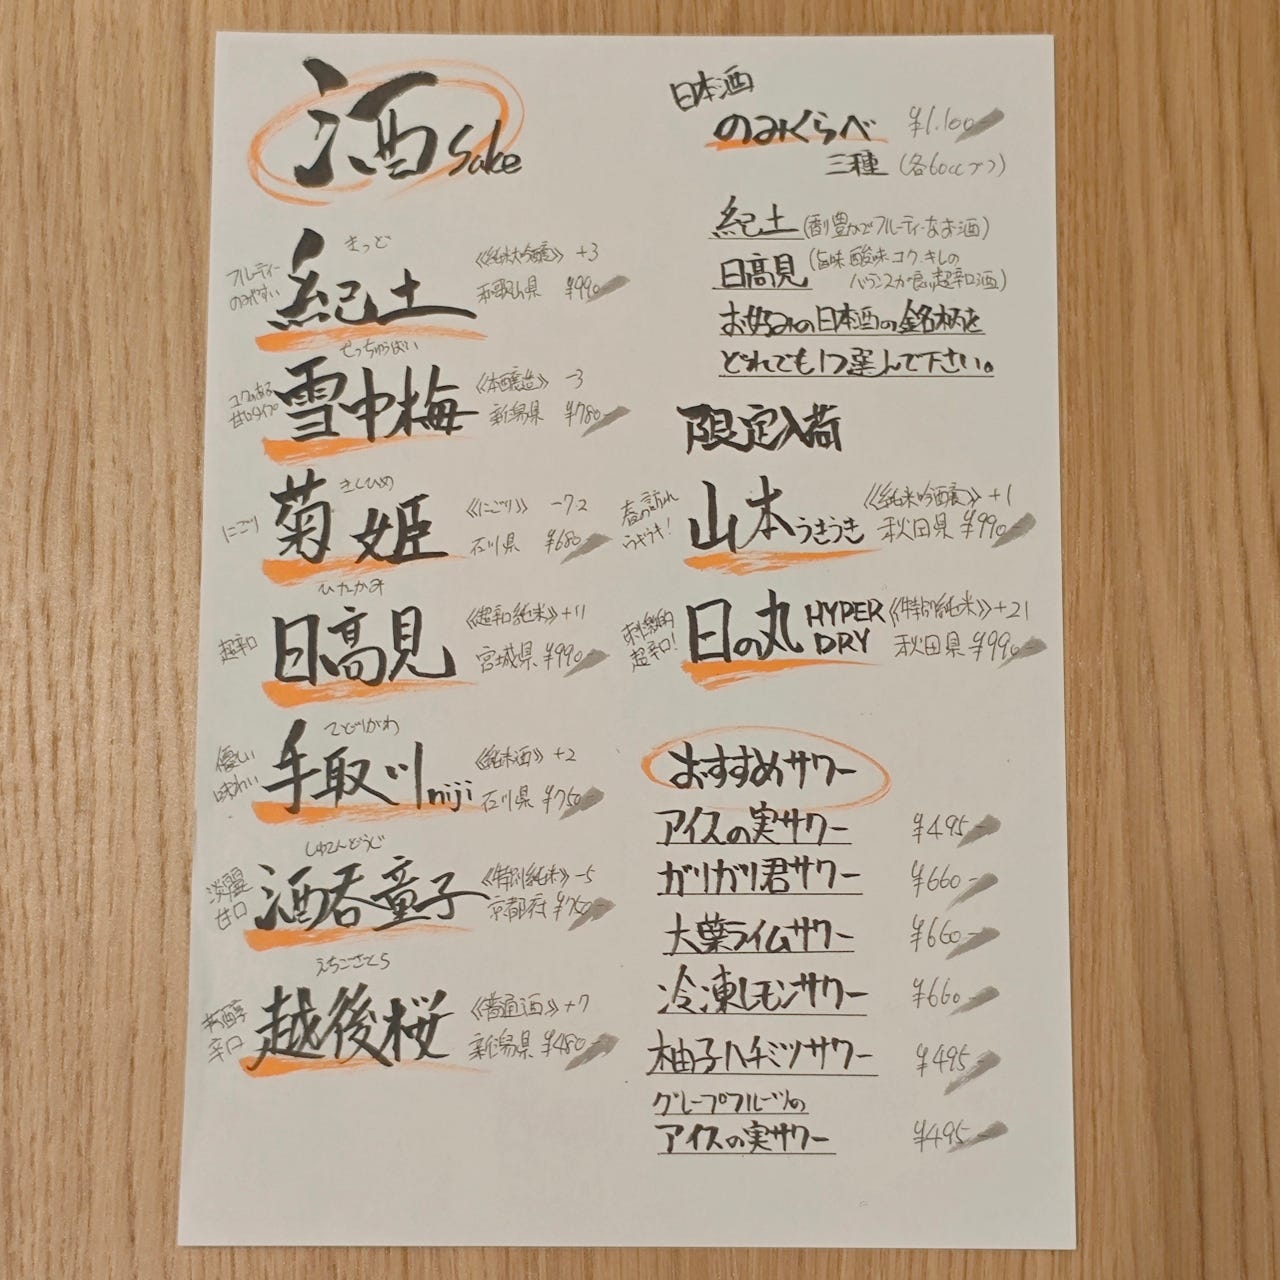 酒 Sake
きっど
フルーティー
のみやすい
紀土
《純米大吟醸》 +3
和歌山県 ¥990-
せっちゅうばい
コクのある
甘口タイプ
雪中梅
《本醸造》 -3
新潟県 ¥780-
きくひめ
にごり
菊姫
《にごり》 -72
石川県 ¥680-
ひたかみ
超辛口
日高見
《超辛純米》+11
宮城県 ¥990-
てどりがわ
優しい
味わい
手取川 niji
《純米酒》 +2
石川県 ¥750-
しゅてんどうじ
淡麗
甘口
酒呑童子
《特別純米》-5
京都府 ¥750-
えちござくら
芳醇
辛口
越後桜
《普通酒》 +7
新潟県 ¥480-
日本酒
のみくらべ ¥1,100-
三種 (各60ccずつ)
紀土 (香り豊かでフルーティーなお酒)
日高見 (旨味 酸味 コク、キレの
バランスが良い超辛口酒)
お好みの日本酒の銘柄を
どれでも1つ選んで下さい。
限定入荷
春の訪れ
うきうき!
山本うきうき
《純米吟醸》+1
秋田県 ¥990-
刺激的
超辛口!
日の丸 HYPER
DRY
《特別純米》+21
秋田県 ¥990-
おすすめサワー
アイスの実サワー ¥495-
ガリガリ君サワー ¥660-
大葉ライムサワー ¥660-
冷凍レモンサワー ¥660-
柚子ハチミツサワー ¥495-
グレープフルーツの
アイスの実サワー ¥495-